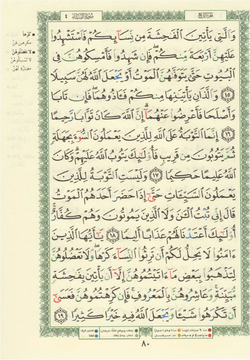 وَالَّٰتِي يَأْتِينَ الْفَٰحِشَةَ مِن نِّسَآئِكُمْ فَاسْتَشْهِدُوا
عَلَيْهِنَّ أَرْبَعَةً مِّنكُمْ فَإِن شَهِدُوا فَأَمْسِكُوهُنَّ فِي
الْبُيُوتِ حَتَّىٰ يَتَوَفَّىٰهُنَّ الْمَوْتُ أَوْ يَجْعَلَ اللَّهُ لَهُنَّ سَبِيلًا
١٥ وَالَّذَانِ يَأْتِيَٰنِهَا مِنكُمْ فَـَٔاذُوهُمَا فَإِن تَابَا
وَأَصْلَحَا فَأَعْرِضُوا عَنْهُمَآ إِنَّ اللَّهَ كَانَ تَوَّابًا رَّحِيمًا
١٦ إِنَّمَا التَّوْبَةُ عَلَى اللَّهِ لِلَّذِينَ يَعْمَلُونَ السُّوٓءَ بِجَهَٰلَةٍ
ثُمَّ يَتُوبُونَ مِن قَرِيبٍ فَأُولَٰٓئِكَ يَتُوبُ اللَّهُ عَلَيْهِمْ وَكَانَ
اللَّهُ عَلِيمًا حَكِيمًا ١٧ وَلَيْسَتِ التَّوْبَةُ لِلَّذِينَ
يَعْمَلُونَ السَّيِّـَٔاتِ حَتَّىٰٓ إِذَا حَضَرَ أَحَدَهُمُ الْمَوْتُ
قَالَ إِنِّي تُبْتُ الْـَٰٔنَ وَلَا الَّذِينَ يَمُوتُونَ وَهُمْ كُفَّارٌ
أُولَٰٓئِكَ أَعْتَدْنَا لَهُمْ عَذَابًا أَلِيمًا ١٨ يَٰٓأَيُّهَا الَّذِينَ
ءَامَنُوا لَا يَحِلُّ لَكُمْ أَن تَرِثُوا النِّسَآءَ كَرْهًا وَلَا تَعْضُلُوهُنَّ
لِتَذْهَبُوا بِبَعْضِ مَآ ءَاتَيْتُمُوهُنَّ إِلَّآ أَن يَأْتِينَ بِفَٰحِشَةٍ
مُّبَيِّنَةٍ وَعَاشِرُوهُنَّ بِالْمَعْرُوفِ فَإِن كَرِهْتُمُوهُنَّ فَعَسَىٰٓ
أَن تَكْرَهُوا شَيْـًٔا وَيَجْعَلَ اللَّهُ فِيهِ خَيْرًا كَثِيرًا ١٩
٨٠